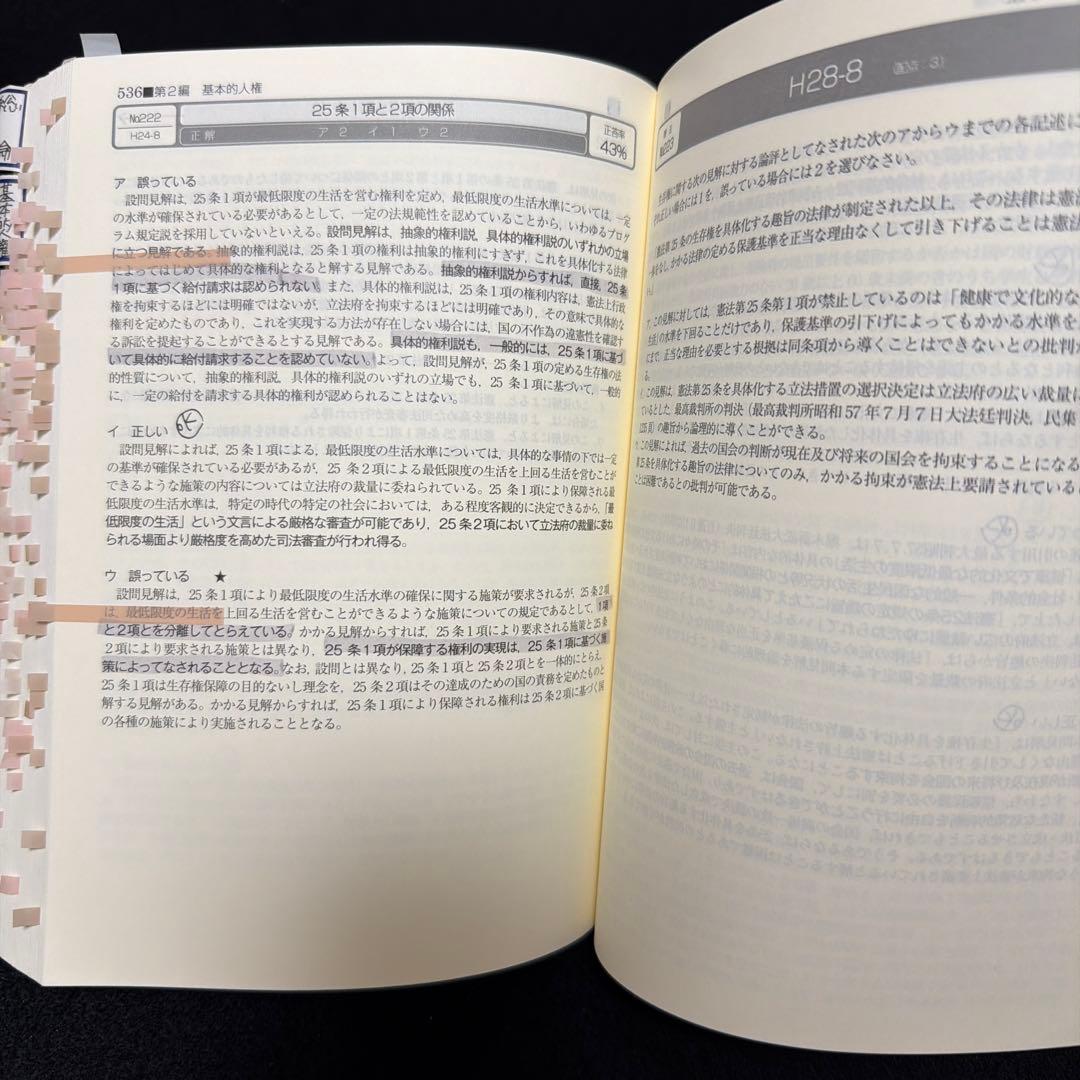 536■第2編 基本的人権
No222
H24-8
25条1項と2項の関係
正解 ア2 イ1 ウ2
正答率
43%
ア 誤っている
設問見解は，25条1項が最低限度の生活を営む権利を定め，最低限度の生活水準については，一定
の水準が確保されている必要があるとして，一定の法規範性を認めていることから，いわゆるプログ
ラム規定説を採用していないといえる。設問見解は，抽象的権利説，具体的権利説のいずれかの立場
に立つ見解である。抽象的権利説は，25条1項の権利は抽象的権利にすぎず，これを具体化する法律
によってはじめて具体的な権利となると解する見解である。抽象的権利説からすれば，直接，25条
1項に基づく給付請求は認められない。また，具体的権利説は，25条1項の権利内容は，憲法上行政
権を拘束するほどには明確ではないが，立法府を拘束するほどには明確であり，その意味で具体的な
権利を定めたものであり，これを実現する方法が存在しない場合には，国の不作為の違憲性を確認す
る訴訟を提起することができるとする見解である。具体的権利説も，一般的には，25条1項に基づ
いて具体的に給付請求することを認めていない。よって，設問見解が，25条1項の定める生存権の法
的性質について，抽象的権利説，具体的権利説のいずれの立場でも，25条1項に基づいて，一般的
に，一定の給付を請求する具体的権利が認められることはない。
イ 正しい
設問見解によれば，25条1項による，最低限度の生活水準については，具体的な事情の下では一定
の基準が確保されている必要があるが，25条2項による最低限度の生活を上回る生活を営むことが
できるような施策の内容については立法府の裁量に委ねられている。25条1項により保障される最
低限度の生活水準は，特定の時代の特定の社会においては，ある程度客観的に決定できるから，「最
低限度の生活」という文言による厳格な審査が可能であり，25条2項において立法府の裁量に委ね
られる場面より厳格度を高めた司法審査が行われ得る。
ウ 誤っている ★
設問見解は，25条1項により最低限度の生活水準の確保に関する施策が要求されるが，25条2項
は，最低限度の生活を上回る生活を営むことができるような施策についての規定であるとして，1項
と2項とを分離してとらえている。かかる見解からすれば，25条1項により要求される施策と25条
2項により要求される施策とは異なり，25条1項が保障する権利の実現は，25条1項に基づく施
策によってなされることとなる。なお，設問とは異なり，25条1項と25条2項とを一体的にとらえ，
25条1項は生存権保障の目的ないし理念を，25条2項はその達成のための国の責務を定めたものと
解する見解がある。かかる見解からすれば，25条1項により保障される権利は25条2項に基づく国
の各種の施策により実施されることとなる。
H28-8 (配点：3)
No223
生存権に関する次の見解に対する論評としてなされた次のアからウまでの各記述に
それ正しい場合には1を，誤っている場合には2を選びなさい。
憲法第25条の生存権を具体化する趣旨の法律が制定された以上，その法律は憲法
一体をなし，かかる法律の定める保護基準を正当な理由なくして引き下げることは憲法
この見解に対しては，憲法第25条第1項が禁止しているのは「健康で文化的な
生活」の水準を下回ることだけであり，保護基準の引下げによってもかかる水準を
にまで，正当な理由を必要とする根拠は同条項から導くことはできないとの批判が
この見解は，憲法第25条を具体化する立法措置の選択決定は立法府の広い裁量に
ているとした，最高裁判所の判決（最高裁判所昭和57年7月7日大法廷判決，民集
の趣旨から論理的に導くことができる。
この見解によれば，過去の国会の判断が現在及び将来の国会を拘束することになる
25条を具体化する趣旨の法律についてのみ，かかる拘束が憲法上要請されている
ことは困難であるとの批判が可能である。
基本的人権